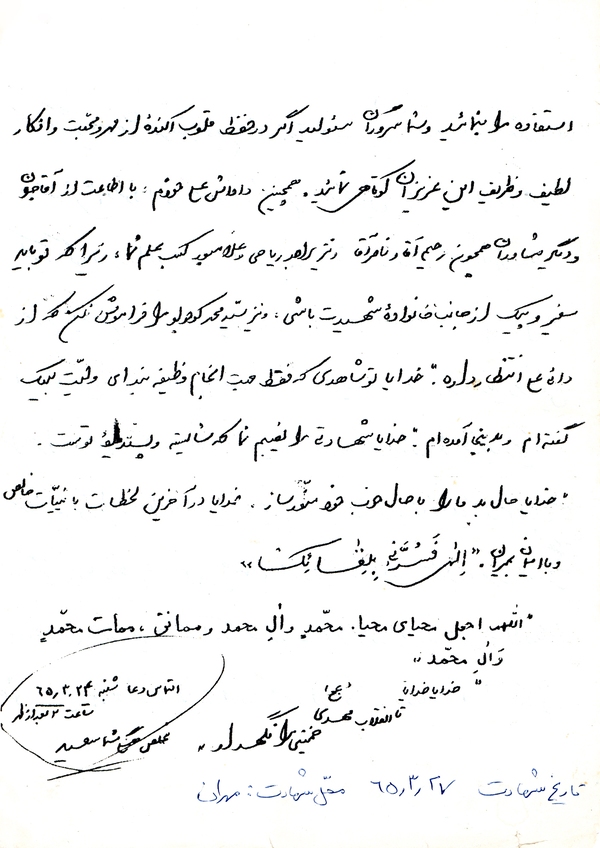 استفاده را بنمائید و شما سروران مسئولید اگر در حفظ قلوب آکنده از مهر و محبت و افکار
لطیف و ظریف این عزیزان کوتاهی نمائید. همچنین داداش علی خودم؛ با اطاعت از آقاجون
و دیگر مشاوران همچون رحیم آقا و ناصر آقا و نیز برادر ریاحی و کسب علم نما، زیرا که تو باید
سفیر و پیک از جانب خانوادهٔ شهیدت باشی، و نیز سید محمد کوچولو را فراموش نکن که از
دائی علی انتظار دارد. "خدایا تو شاهدی که فقط جهت انجام وظیفه به ندای ولایت لبیک
گفته ام و بدینجا آمده ام": خدایا شهادتی را نصیبم نما که شایسته و پسندیدهٔ توست.
"خدایا حال بد ما را با حال خوب خود منوّر ساز. خدایا در آخرین لحظات با نیّات خالص
و با ایمان بمیران." اِلهی فَسُرَّنی بِلِقائِکَ"
"اللهم اجعل محیای محیا. محمّدٍ وآلِ محمد و مماتی، ممات محمّدٍ
وَآلِ محمّد"
"خدایا خدایا
تا انقلاب مهدی "عج"
خمینی را نگهدار"
التماس دعا شنبه ۶۵٫۳٫۲۴
ساعت ۲ بعد از ظهر
مخلص همگی شما سعید
تاریخ شهادت ۶۵٫۳٫۲۷ محل شهادت: مهران